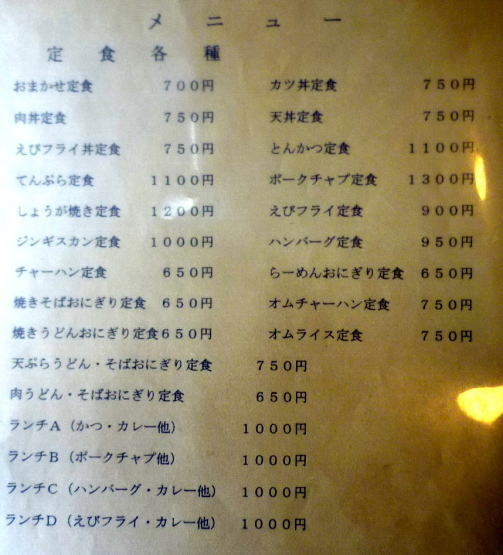 メニュー
定食各種
おまかせ定食 700円
肉丼定食 750円
えびフライ丼定食 750円
てんぷら定食 1100円
しょうが焼き定食 1200円
ジンギスカン定食 1000円
チャーハン定食 650円
焼きそばおにぎり定食 650円
焼きうどんおにぎり定食650円
天ぷらうどん・そばおにぎり定食 750円
肉うどん・そばおにぎり定食 650円
ランチA(かつ・カレー他) 1000円
ランチB(ポークチャプ他) 1000円
ランチC(ハンバーグ・カレー他) 1000円
ランチD(えびフライ・カレー他) 1000円
カツ丼定食 750円
天丼定食 750円
とんかつ定食 1100円
ポークチャプ定食 1300円
えびフライ定食 900円
ハンバーグ定食 950円
らーめんおにぎり定食 650円
オムチャーハン定食 750円
オムライス定食 750円